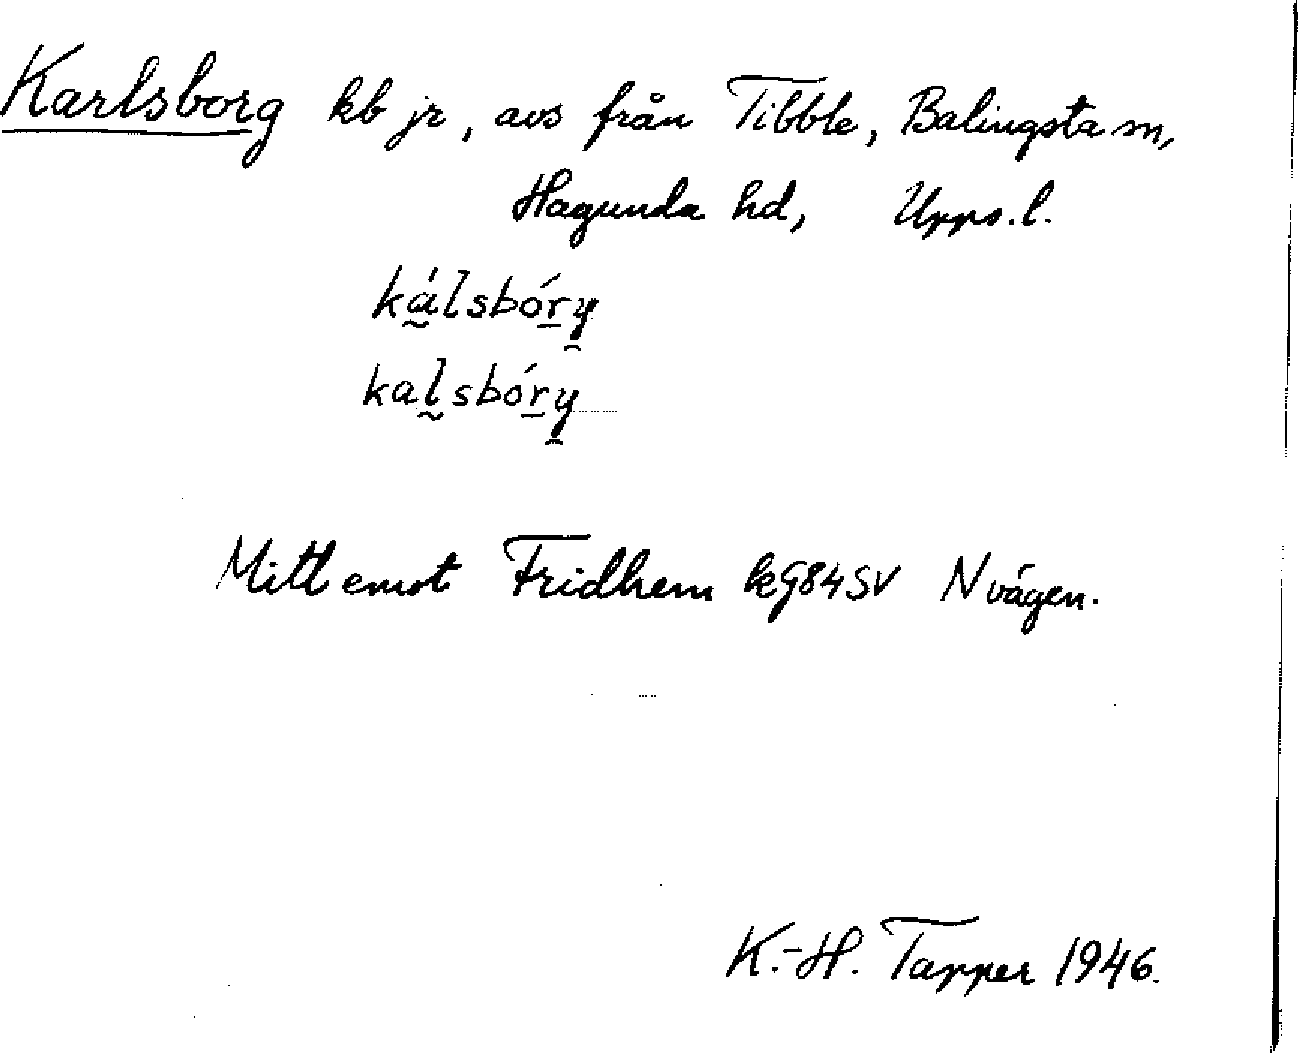 Karlsborg kb jr, avs från Tibble, Balingsta sn,
Hagunda hd, Upps. l.
kálsbóry
kalsbóry
Mitt emot Fridhem kG84SV N vägen.
K.-H. Tapper 1946.